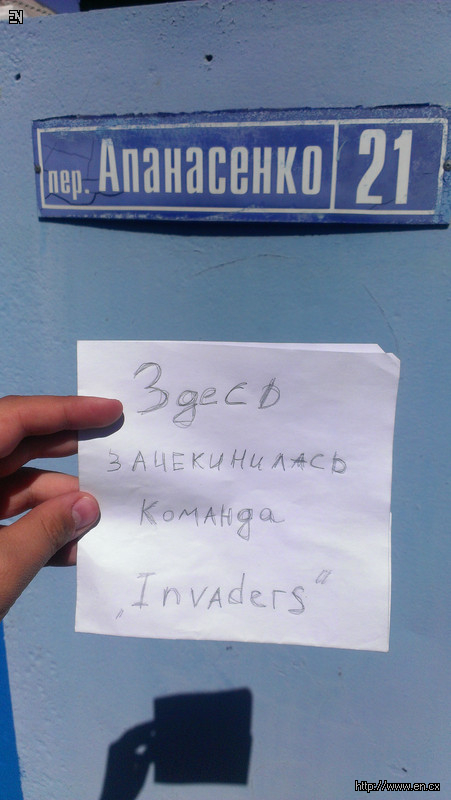 EN
пер. Апанасенко 21
Здесь
зачекинилась
команда
„Invaders"
http://www.en.cx